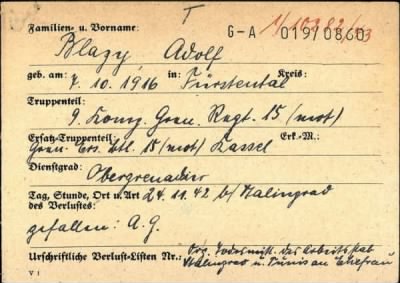 T
Familien- u. Vorname: G-A 019/0860
Blazy, Adolf
geb. am: 7. 10. 1916 in: Fürstental Kreis:
Truppenteil:
9. Komp. Gren. Regt. 15 (mot)
Ersatz-Truppenteil: Erk.-M.:
Gren. Ers. Btl. 15 (mot) Kassel
Dienstgrad:
Obergrenadier
Tag, Stunde, Ort u. Art 24. 11. 42 b/ Stalingrad
des Verlustes:
gefallen: A.G.
Urschriftliche Verlust-Listen Nr.: Org. Todesmitt. des Arbeitsstab
Stalingrad u. Tunis an Ehefrau
V 1